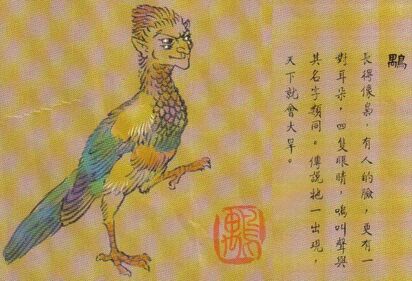 鶚
長得像梟，有人的臉，更有一
對耳朵，四隻眼睛，鳴叫聲與
其名字類同。傳說牠一出現，
天下就會大旱。